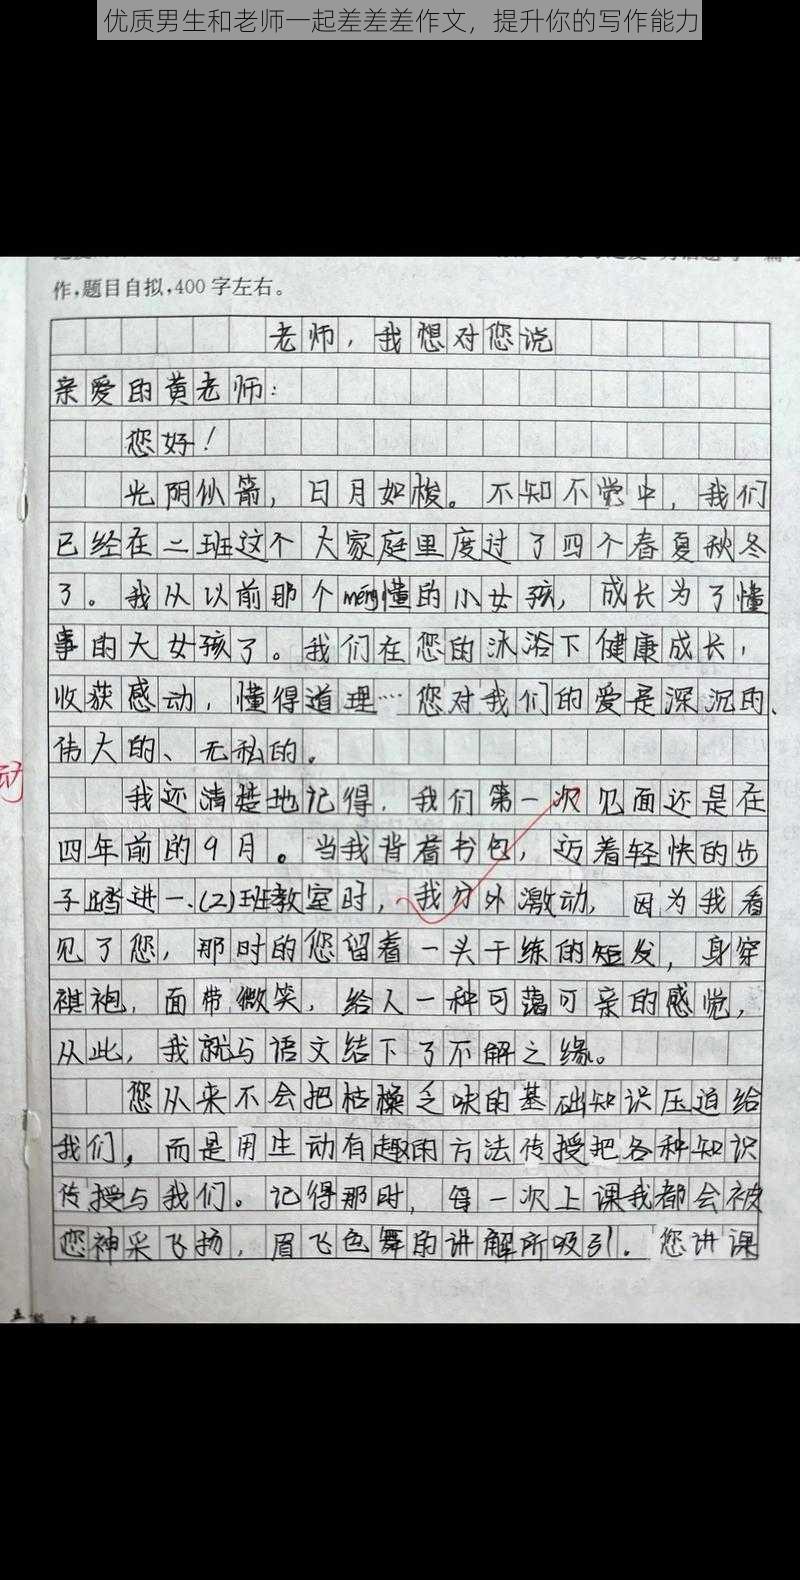 优质男生和老师一起差差差作文，提升你的写作能力
作，题目自拟，400字左右。
老师，我想对您说
亲爱的黄老师：
您好！
光阴似箭，日月如梭。不知不觉中，我们
已经在二班这个大家庭里度过了四个春夏秋冬
了。我从以前那个měng懂的小女孩，成长为了懂
事的大女孩了。我们在您的沐浴下健康成长，
收获感动，懂得道理…您对我们的爱是深沉的、
伟大的、无私的。
我还清楚地记得，我们第一次见面还是在
四年前的9月。当我背着书包，迈着轻快的步
子踏进一.(2)班教室时，我分外激动，因为我看
见了您，那时的您留着一头干练的短发，身穿
褀袍，面带微笑，给人一种可蔼可亲的感觉，
从此，我就与语文结下了不解之缘。
您从来不会把枯橾乏味的基础知识压迫给
我们，而是用生动有趣的方法传授把各种知识
传授与我们。记得那时，每一次上课我都会被
您神采飞扬，眉飞色舞的讲解所吸引。您讲课